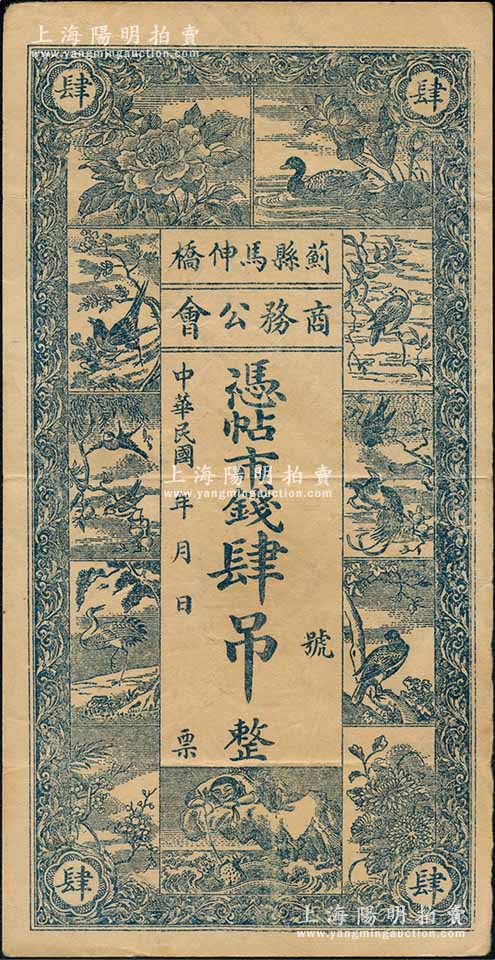 上海陽明拍賣
www.yangmingauction.com
肆
肆
薊縣馬伸橋
商務公會
號
憑帖市錢肆吊整
中華民國 年 月 日 票
上海陽明拍賣
www.yangmingauction.com
肆
肆
上海陽明拍賣
www.yangmingauction.com